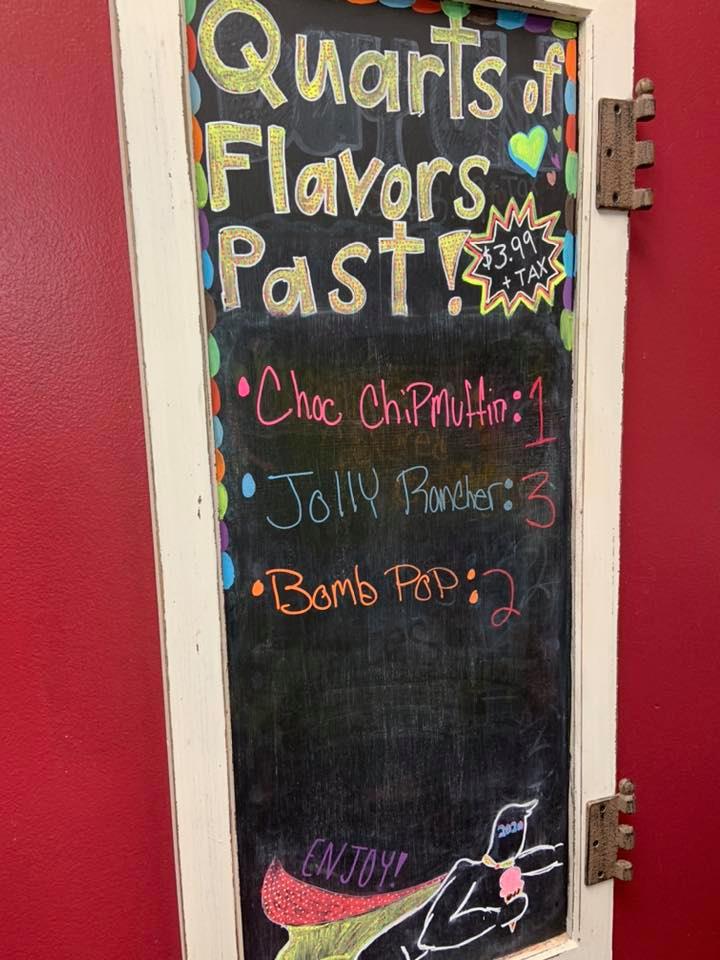 Quarts of
Flavors
Past!
$3.99
+ TAX
• Choc ChipMuffin: 1
• Jolly Rancher: 3
• Bomb Pop: 2
ENJOY!
2020